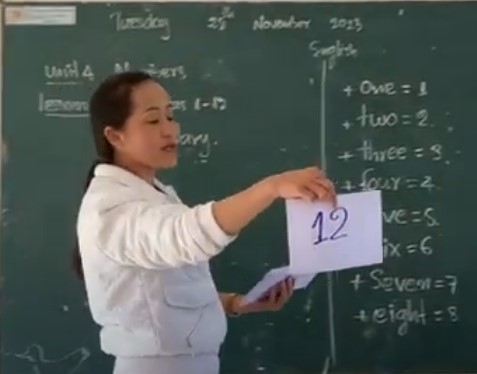 Tuesday 28th November 2023
English
Unit 4 Numbers
lesson 1-12
ary.
+ one = 1
+ two = 2.
+ three = 3.
+ four = 4
ve = 5.
ix = 6
+ Seven = 7
+ eight = 8
12